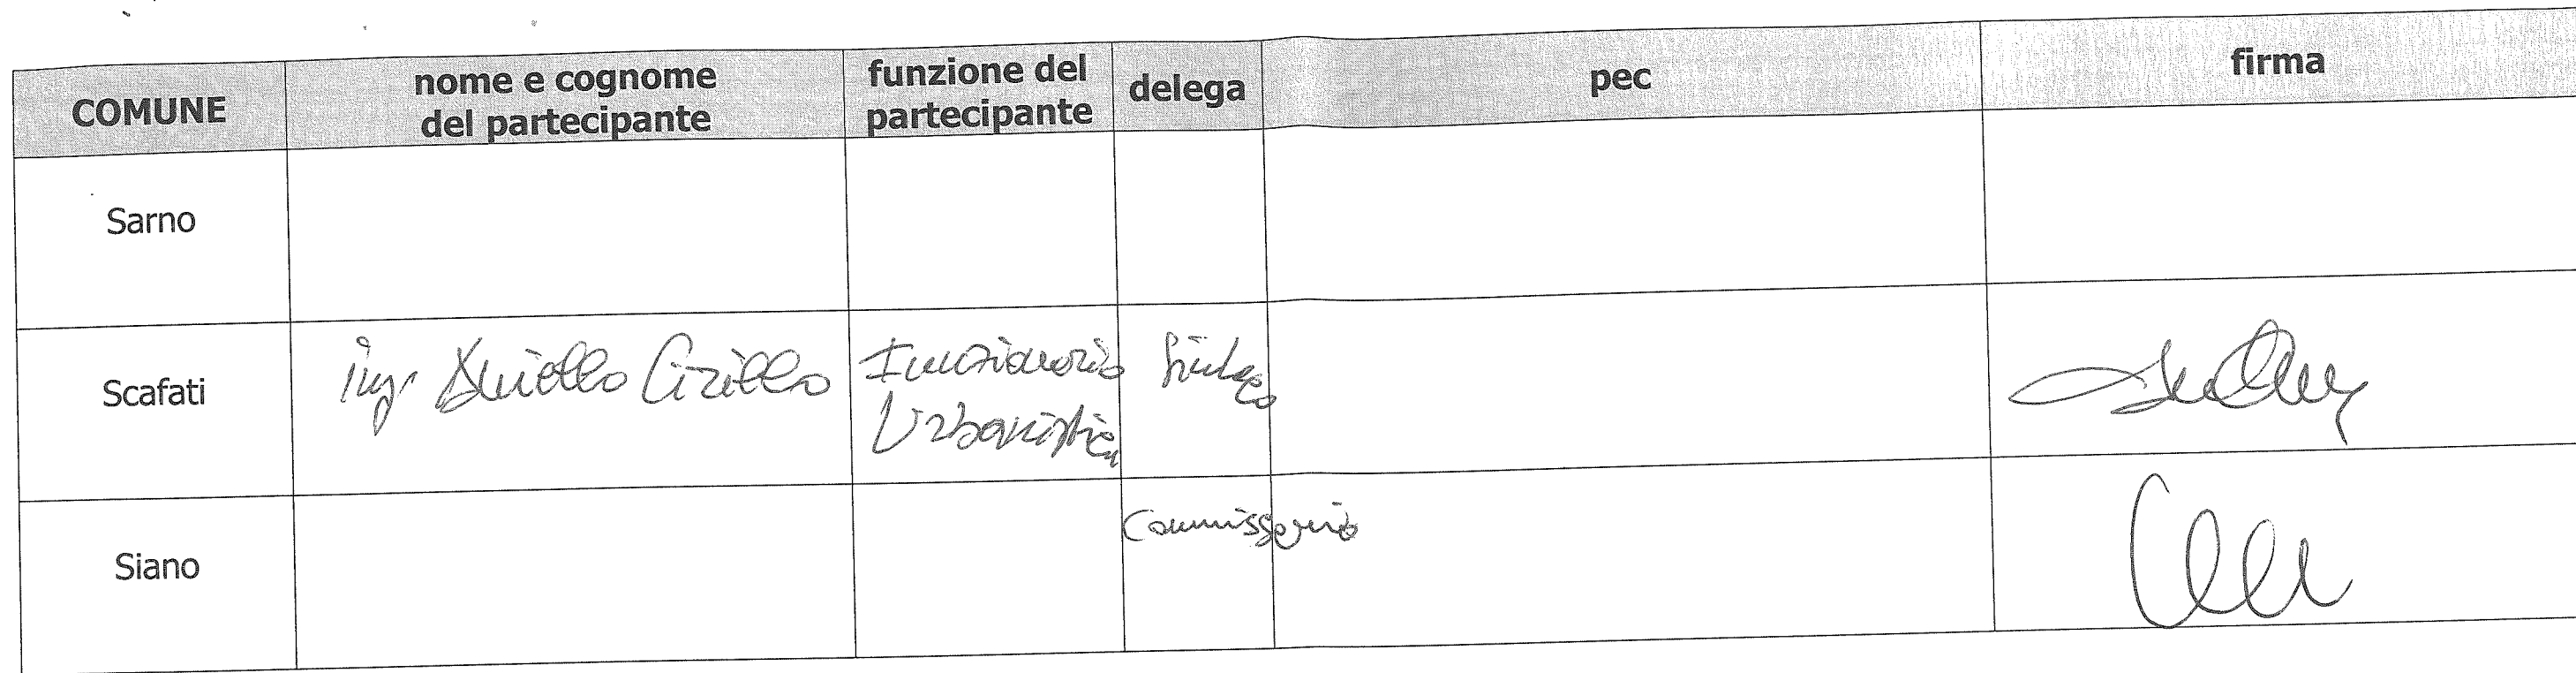 COMUNE nome e cognome del partecipante funzione del partecipante delega pec firma
Sarno
Scafati ing. Aniello Cirillo Funzionario Urbanistica Sindaco
Siano Commissario